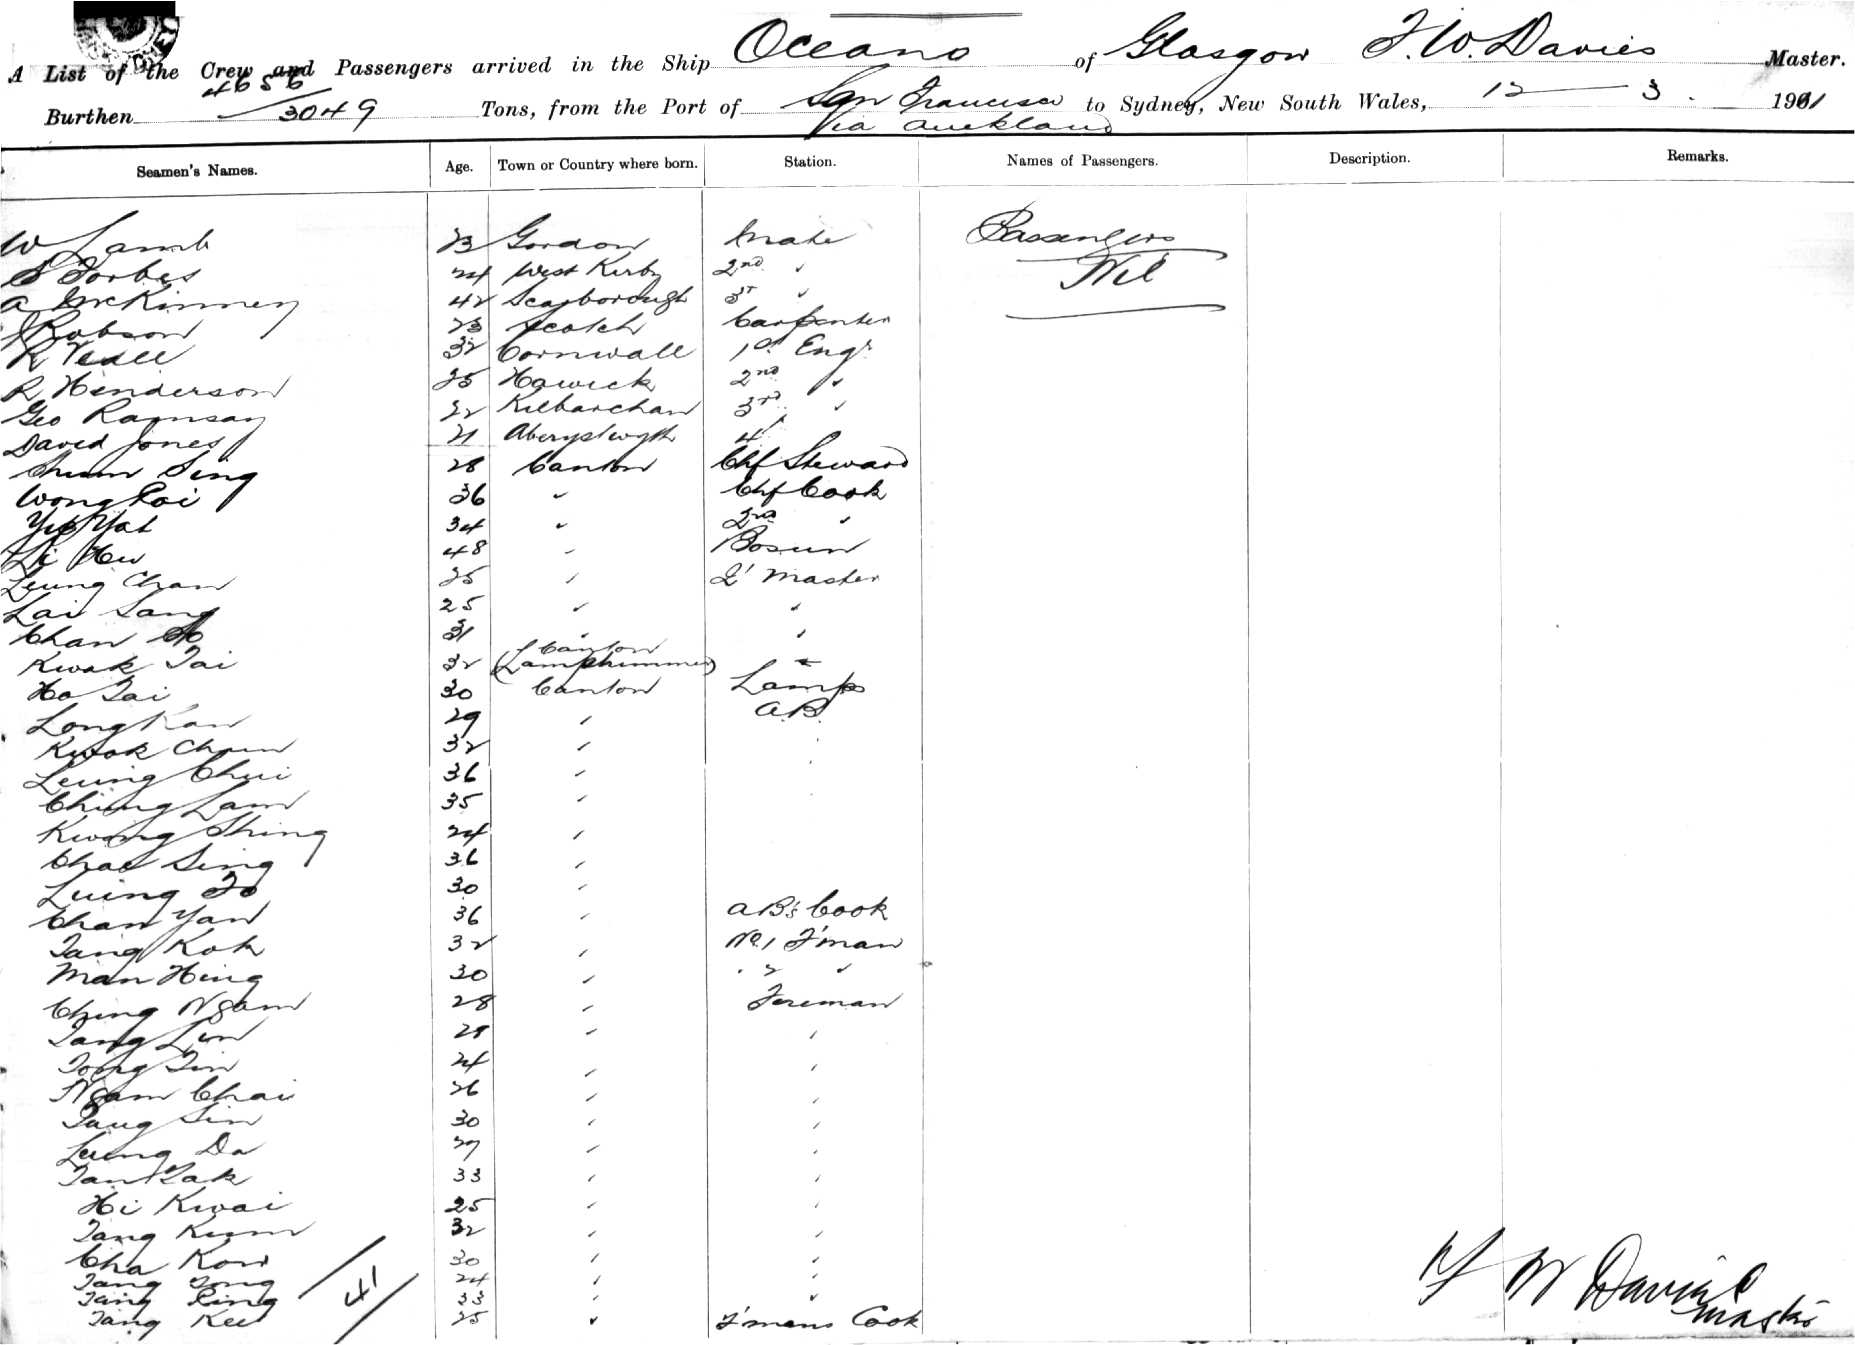 A List of the Crew and Passengers arrived in the Ship Oceano of Glasgow F. W. Davies Master.
Burthen 4656/3049 Tons, from the Port of San Francisco via Auckland to Sydney, New South Wales, 12 - 3. 1911
Seamen's Names. Age. Town or Country where born. Station. Names of Passengers. Description. Remarks.
W Lamb 23 Gordon Mate Passengers
S Forbes 24 West Kirby 2nd " Nil
A McKinney 42 Scarborough 3r "
J Robson 23 Scotch Carpenter
R 32 Cornwall 1st Engr
R Henderson 25 Hawick 2nd "
Geo Ramsay 22 Kilbarchan 3rd "
David Jones 21 Aberystwyth 4
Chum Sing 28 Canton Chf Steward
Wong Poi 36 " Chf Cook
Yip Yat 34 " 2nd "
Li Hu 48 " Bosun
Leung Chan 25 " Q' Master
Lai Sang 25 " "
Chan 31 " "
Kwok Tai 32 Canton (Lamptrimmer) "
Ho Tai 30 Canton Lamps
Long Kan 29 " A.B.
Kwok Chun 32 "
Leung Chui 36 "
Ching Lam 35 "
Kwong Shing 24 "
Chao Sing 36 "
Luing To 30 "
Chan Yan 36 " AB's Cook
Tang Kok 32 " No. 1 F'man
Man Hing 30 " " 2 "
Ching Ngam 28 " Fireman
Tang Lin 29 " "
Tong Tin 24 " "
Ngam Chai 26 " "
Tang Sin 30 " "
Leung Da 27 " "
Tan Tak 33 " "
Hi Kwai 25 " "
Tang Kum 32 " "
Cha Kow 30 " "
Tang Tong 24 " "
Tang Ping 33 " "
Tang Kee 25 " F'mens Cook
41
F W Davies
Master